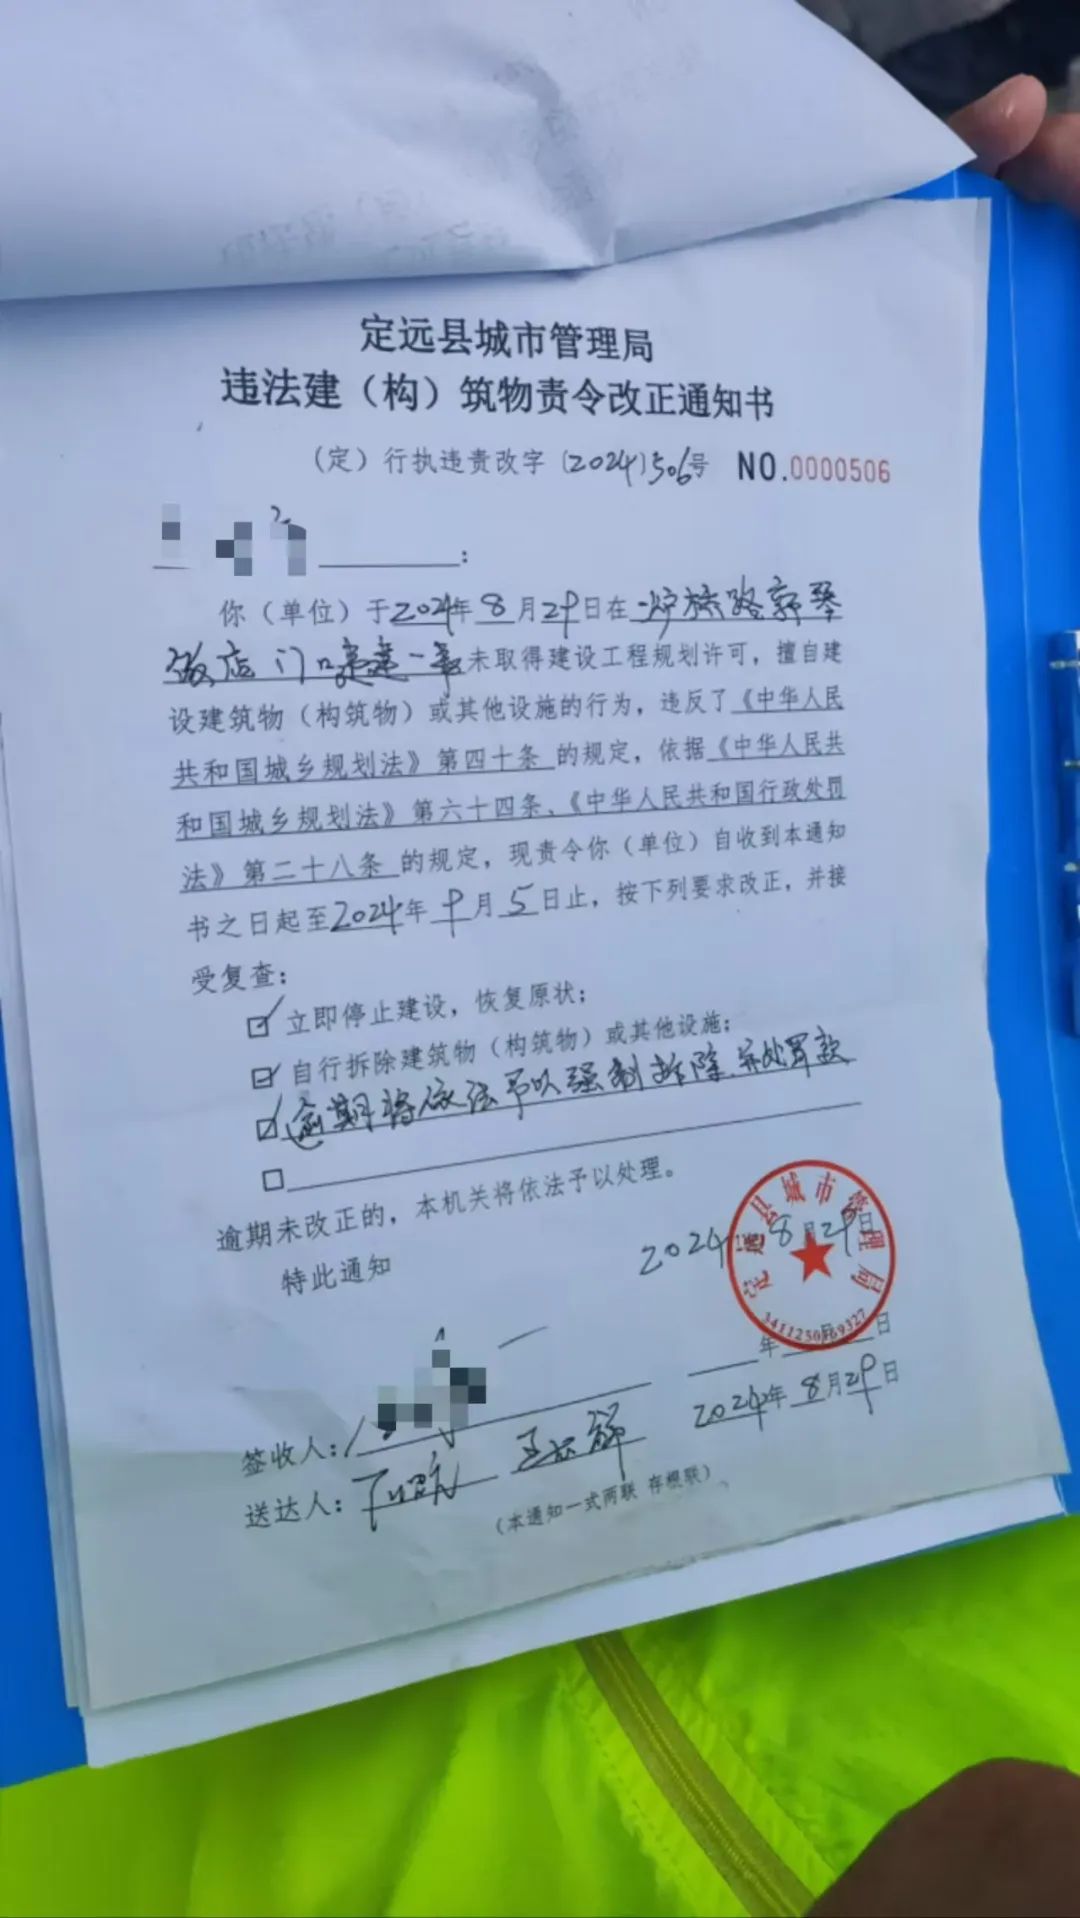 定远县城市管理局
违法建（构）筑物责令改正通知书
（定）行执违责改字〔2024〕506号 NO.0000506
：
你（单位）于2024年8月29日在炉桥路郭琴
饭店门口 未取得建设工程规划许可，擅自建
设建筑物（构筑物）或其他设施的行为，违反了《中华人民
共和国城乡规划法》第四十条 的规定，依据《中华人民共
和国城乡规划法》第六十四条、《中华人民共和国行政处罚
法》第二十八条 的规定，现责令你（单位）自收到本通知
书之日起至2024年9月5日止，按下列要求改正，并接
受复查：
☑立即停止建设，恢复原状；
☑自行拆除建筑物（构筑物）或其他设施；
☑逾期将依法予以强制拆除并处罚款
□
逾期未改正的，本机关将依法予以处理。
特此通知
2024 8月29日
定远县城市管理局
年 月 日
签收人：
送达人： 2024年8月29日
（本通知一式两联 存根联）